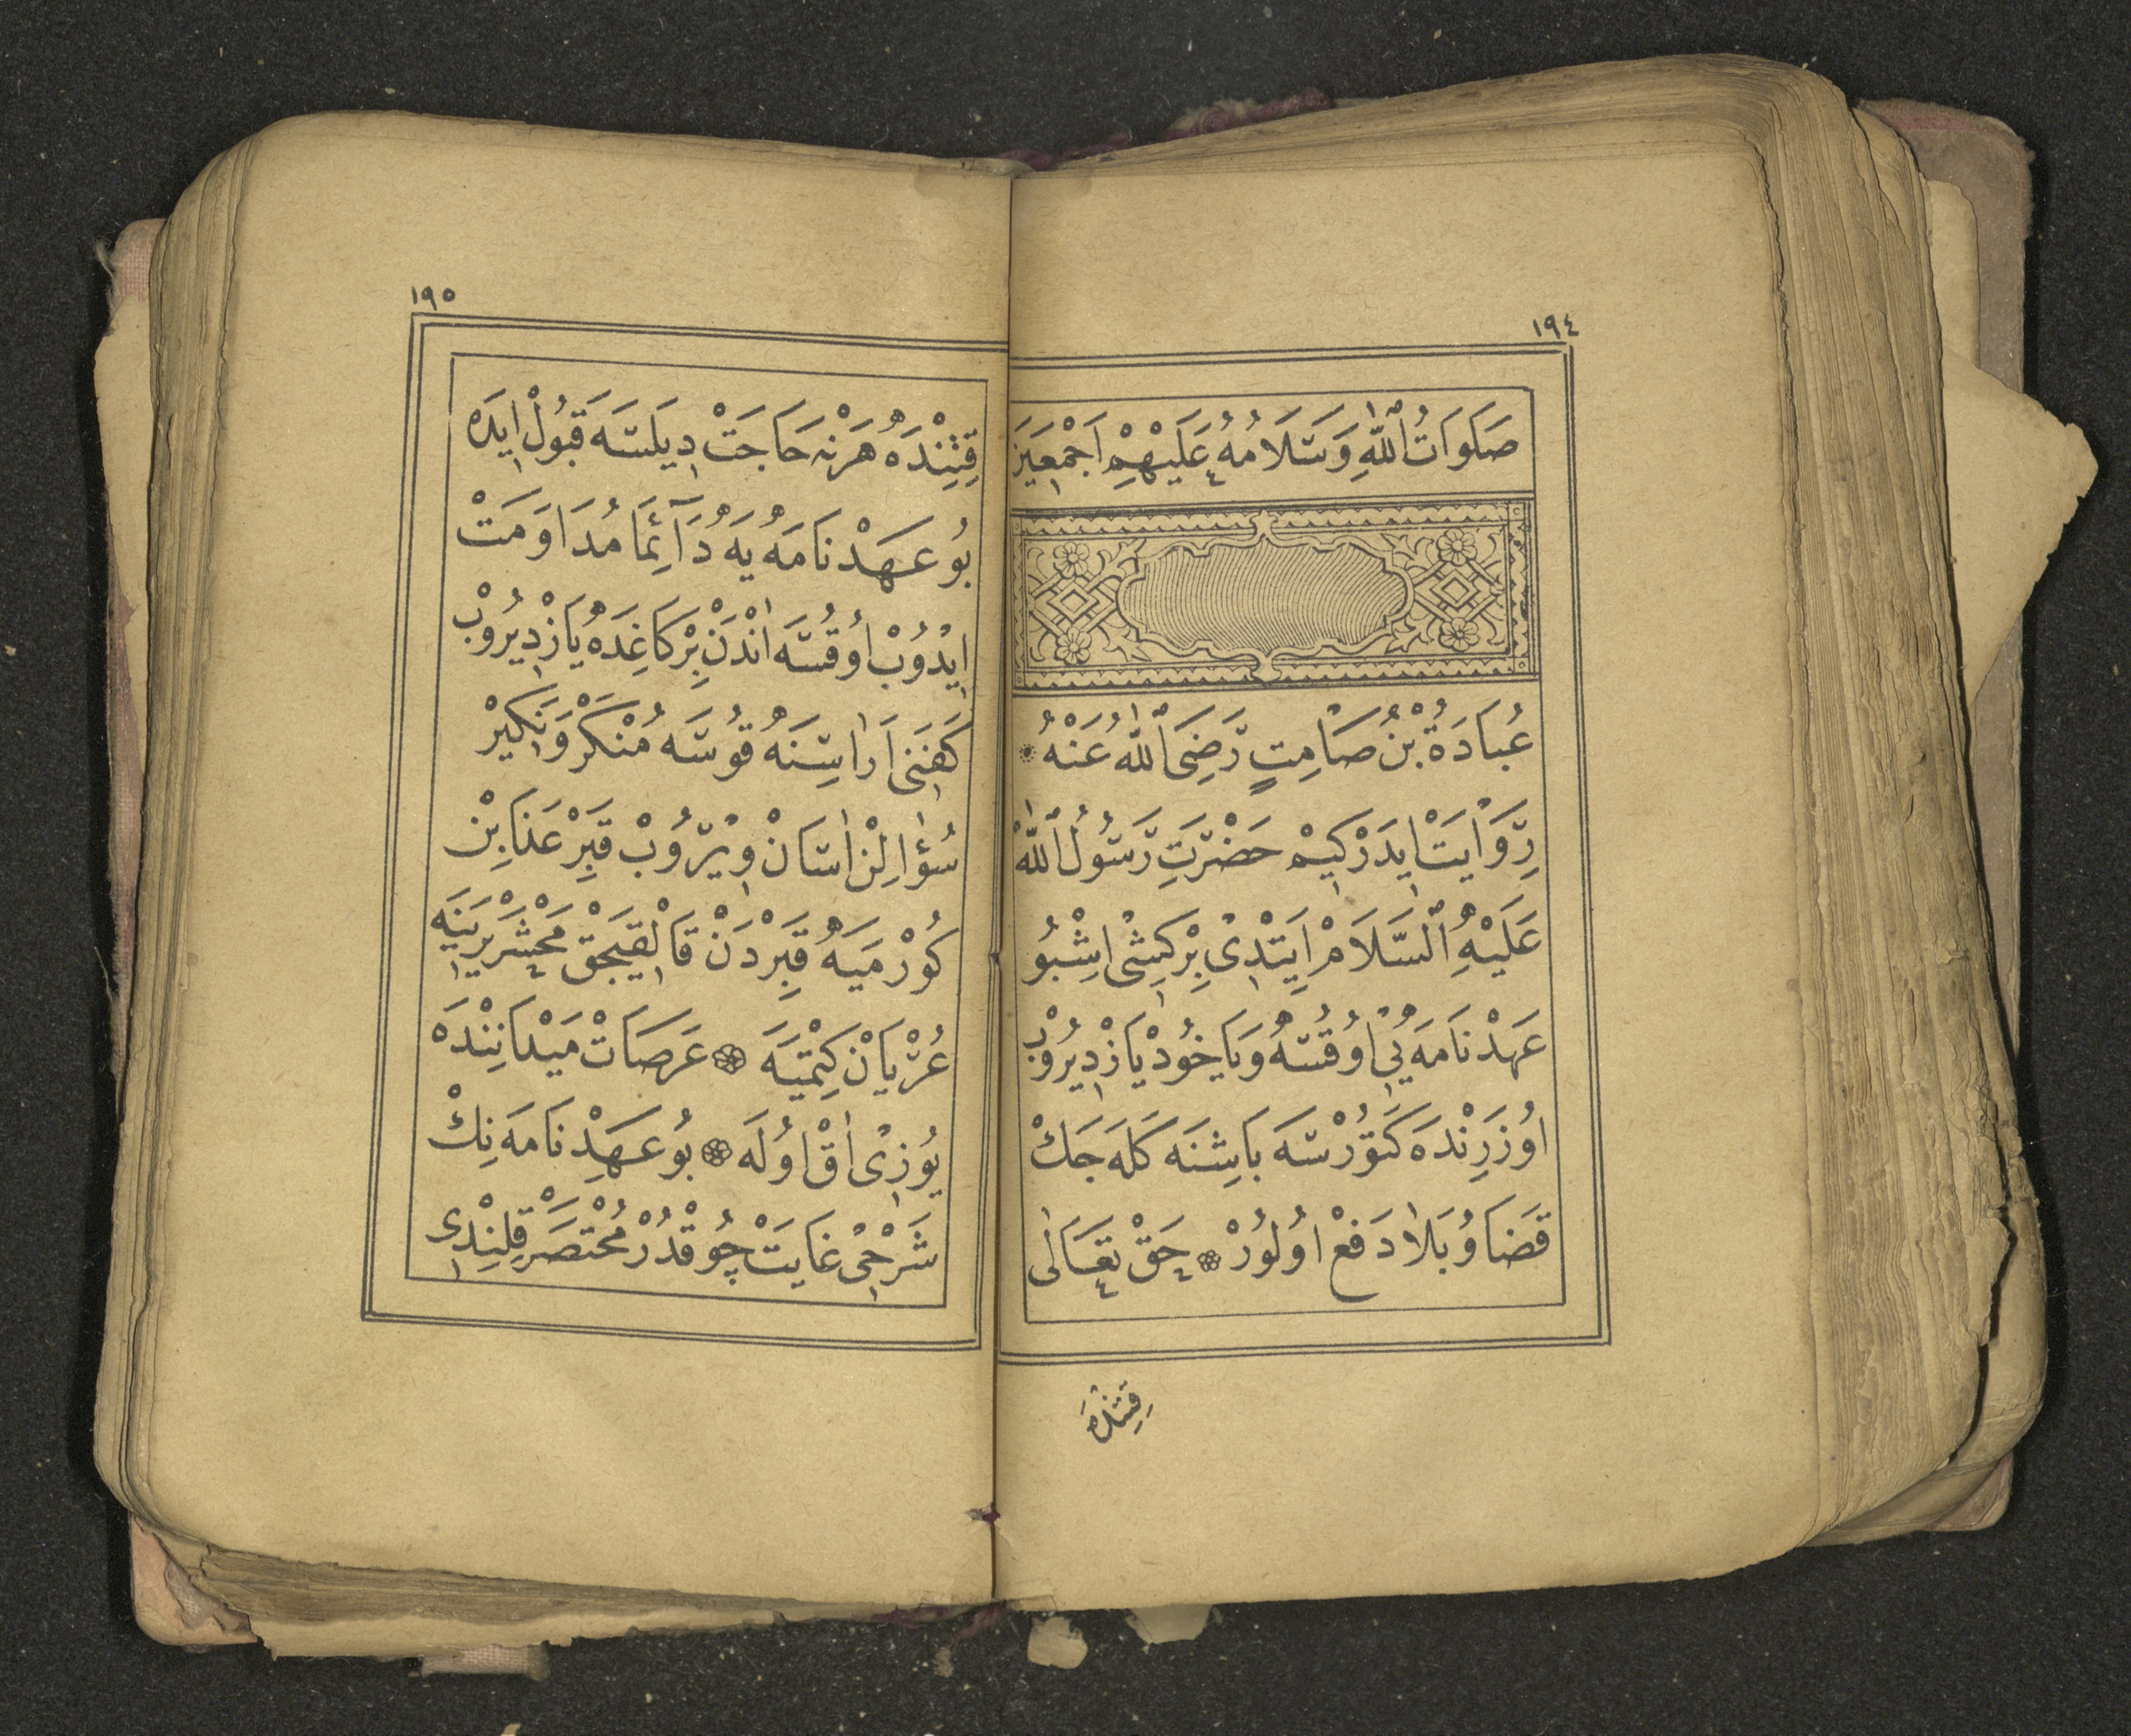 ١٩٤
صَلَوَاتُ اللّٰهِ وَسَلَامُهُ عَلَيْهِمْ اَجْمَعِينَ
عُبَادَةُ بْنُ صَامِتٍ رَضِيَ اللّٰهُ عَنْهُ
رِوَايَتْ اِيدَرْكِيمْ حَضْرَتِ رَسُولُ اللّٰهْ
عَلَيْهِ السَّلَامْ اَيِتْدِى بِرْكِشِى اِشْبُو
عَهَدْنَامَهيِى اُوقُسَه وَيَاخُودْ يَازْدِيرُوبْ
اوُزَرِنْدَه كَتوُرْسَه بَاشِنَه كَلَهجَكْ
قَضَاوُ بَلَا دَفعْ اوُلوُرْ ۞ حَقْ تَعَالٰى
قِتِنْدَه
١٩٥
قِتِنْدَه هَرْنَه حَاجَتْ دِيلَسَه قَبُولْ اِيدَه
بُو عَهَدْنَامَهيَه دَآئِمَا مُدَاوَمَتْ
اِيْدُوبْ اوُقُسَه اَنْدَنْ بِرْكَاغِدَه يَازْدِيرُوبْ
كَفَنِى اَرَاسِنَه قُوسَه مُنْكَرْ وَنَكِيرْ
سُؤَالِنْ اٰسَانْ وِيْرُوبْ قَبِرْ عَذَابِنْ
كُورْمَيَه قَبِرْدَنْ قَالْقِيجَقْ مَحْشَرْ يَرِينَه
عُرْيَانْ كِتْمِيَه ۞ عَرَصَاتْ مَيْدَانِنْدَه
يُوزِى اٰقْ اوُلَه ۞ بُو عَهَدْنَامَهنِكْ
شَرْحِى غَايَتْ چُوقْدُرْ مُخْتَصَرْ قِلِنْدِى